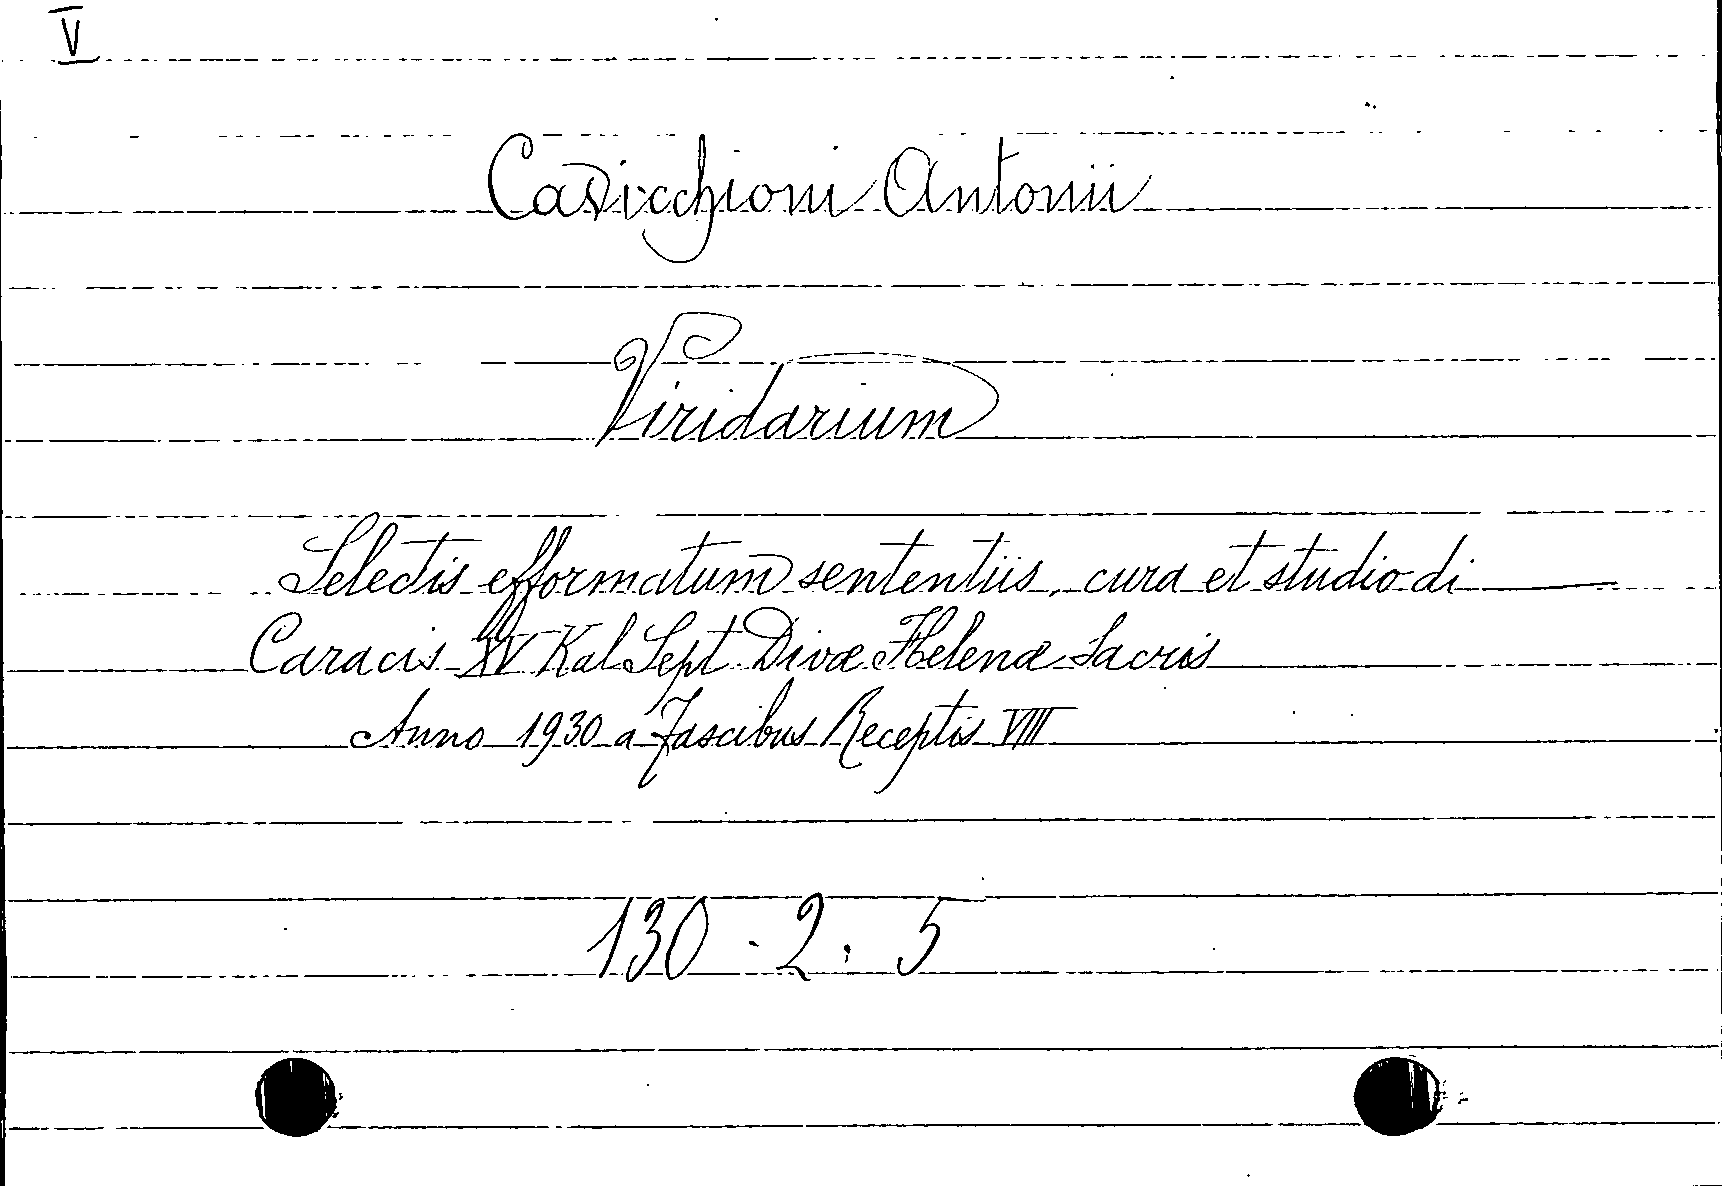 V
Cavicchioni Antonii
Viridarium
Selectis efformatum sententiis, cura et studio di
Caracis XV Kal Sept. Divæ Helenæ Sacris
Anno 1930 a Fascibus Receptis VIII
130 - 2. 5